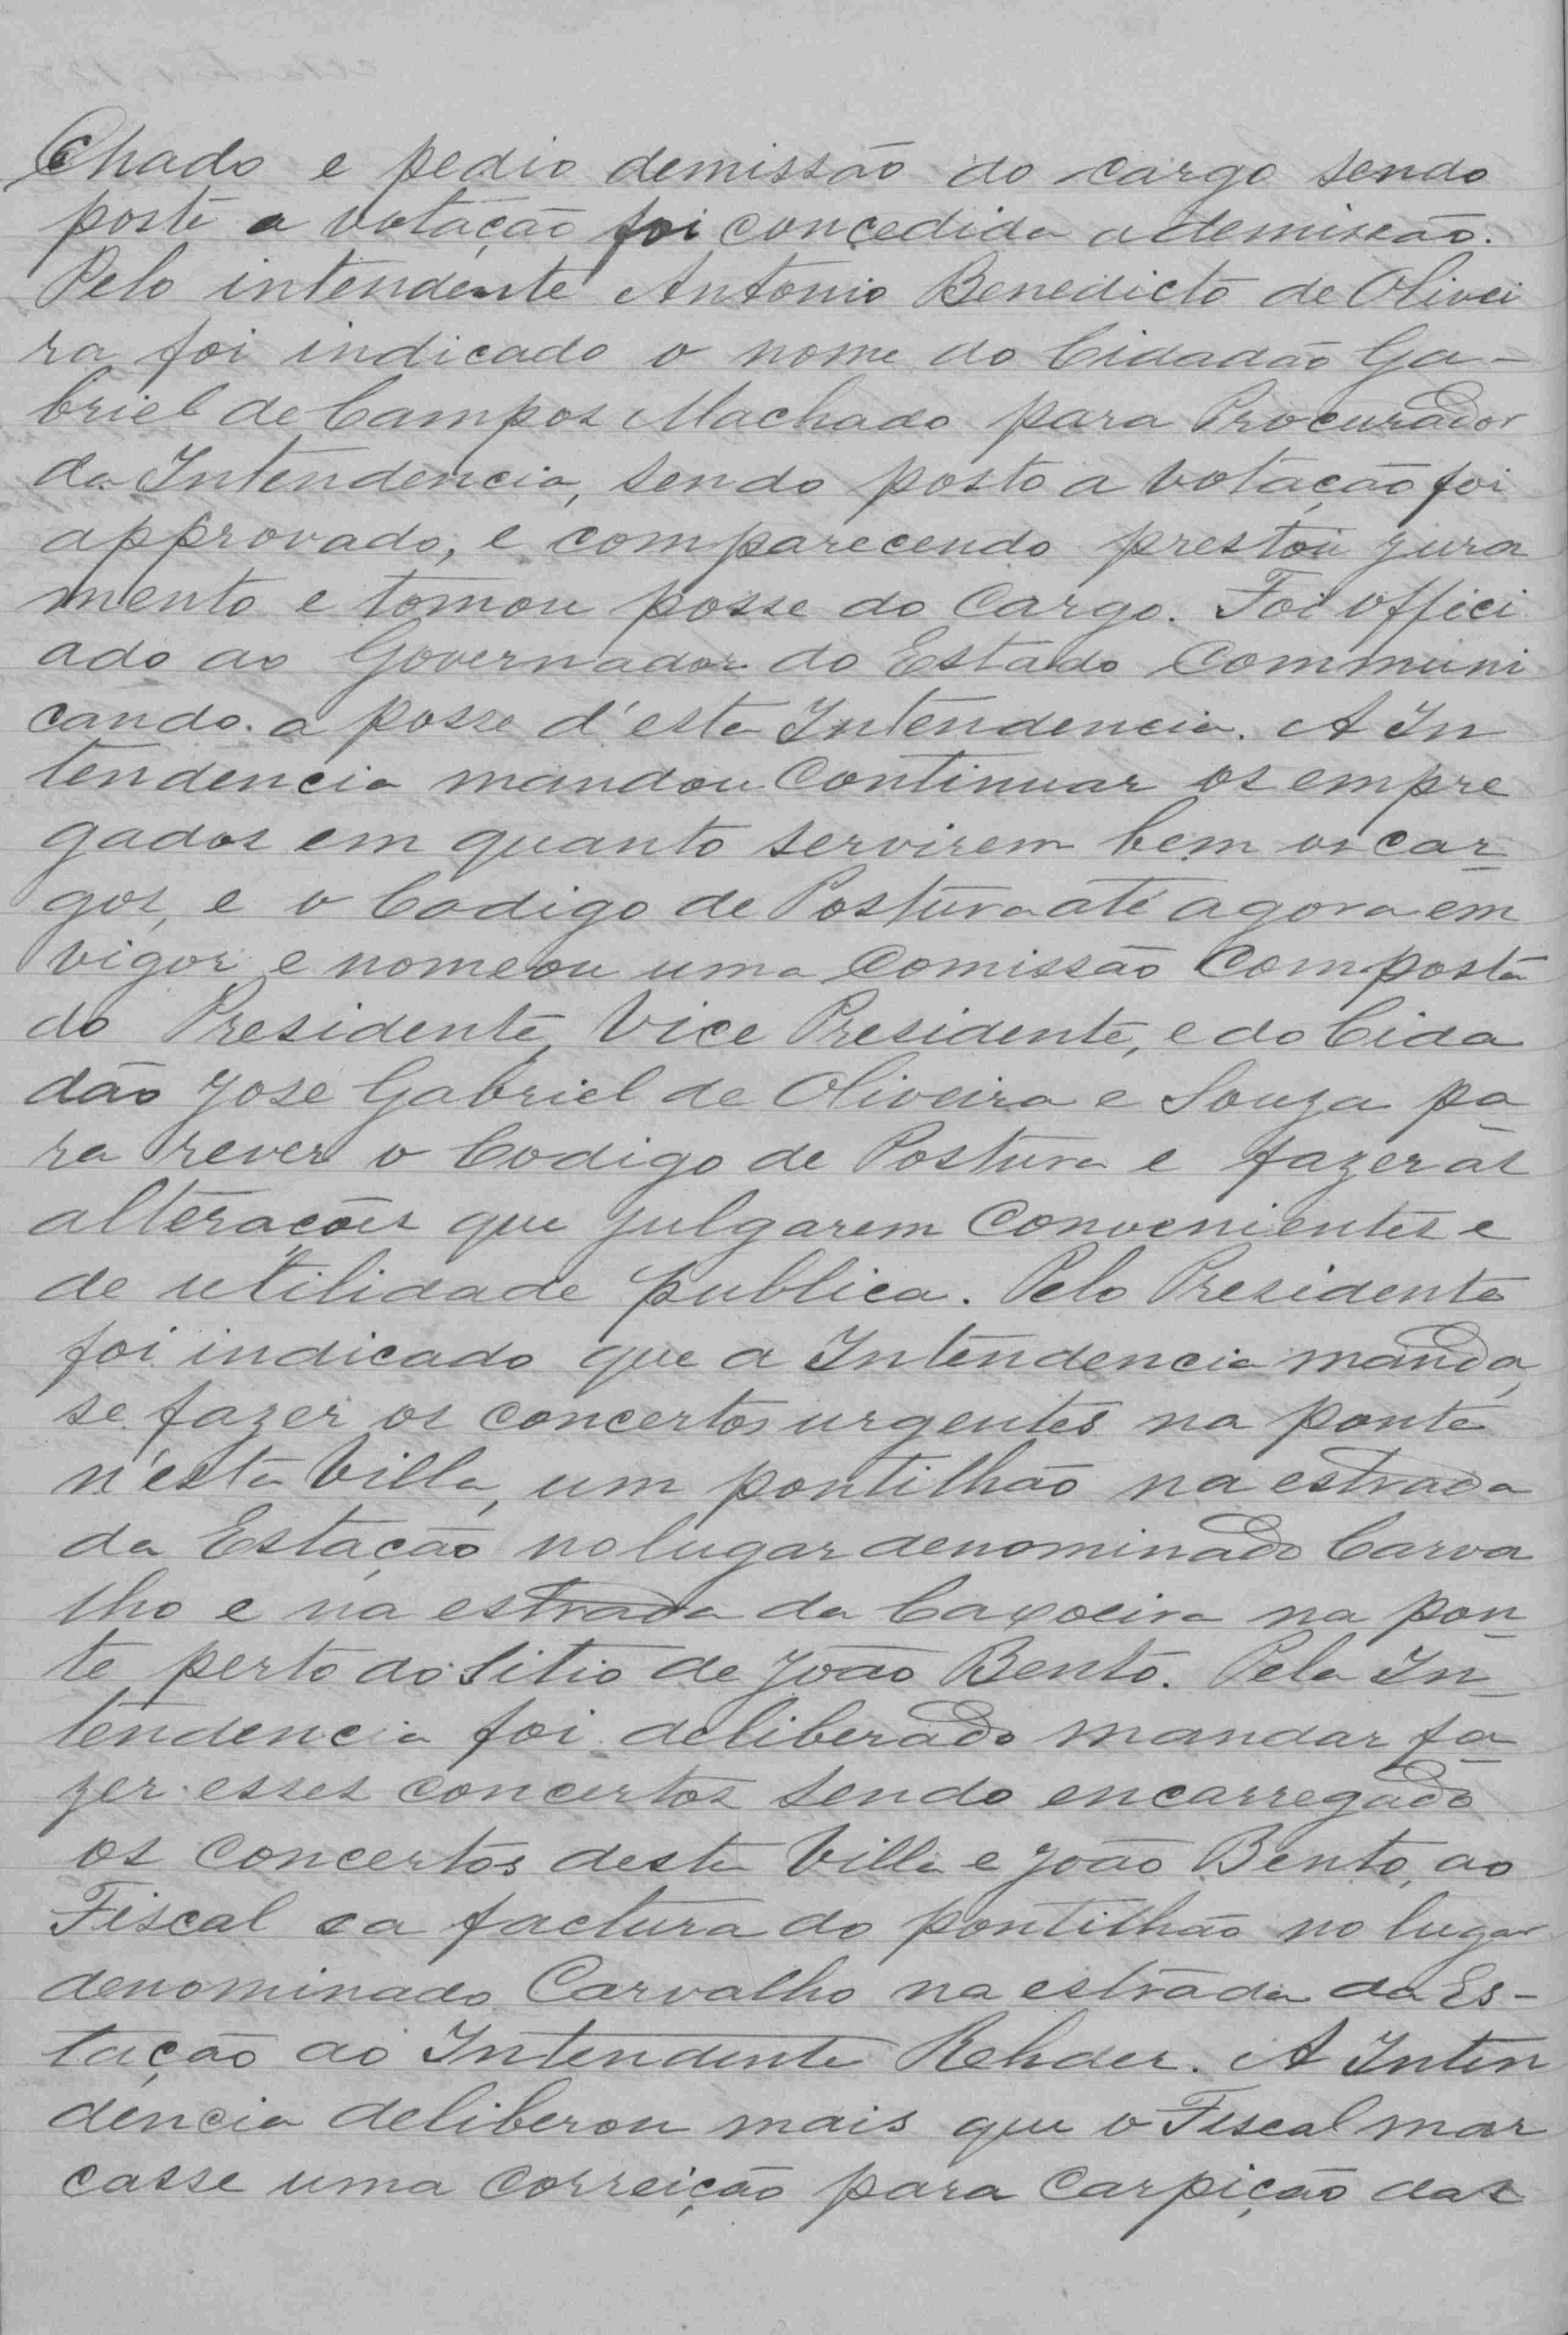 Chado e pedio demissão do cargo sendo
posta a votação foi concedida a demissão.
Pelo intendente Antonio Benedicto de Olivei
ra foi indicado o nome do Cidadão Ga-
briel de Campos Machado para Procurador
da Intendencia, sendo posto a votação foi
approvado, e comparecendo prestou jura
mento e tomou posse do Cargo. Foi offici
ado ao Governador do Estado Communi
cando a posse d'esta Intendencia. A In
tendencia mandou Continuar os empre
gados em quanto servirem bem os car-
gos, e o Codigo de Postura até agora em
vigor e nomeou uma Comissão Composta
do Presidente, Vice Presidente, e do Cida
dão José Gabriel de Oliveira e Souza pa-
ra rever o Codigo de Postura e fazer as
alterações que julgarem Convenientes e
de utilidade publica. Pelo Presidente
foi indicado que a Intendencia manda
se fazer os concertos urgentes na ponte
n'esta Villa, um pontilhão na estrada
da Estação no lugar denominado Carva
lho e na estrada da Caxoeira na pon-
te perto do Sitio de João Bento. Pela In-
tendencia foi deliberado mandar fa-
zer esses concertos sendo encarregado
os concertos desta Villa e João Bento, ao
Fiscal e a factura do pontilhão no lugar
denominado Carvalho na estrada da Es-
tação ao Intendente Rehder. A Inten
dencia deliberou mais que o Fiscal mar
casse uma Correição para Carpição das